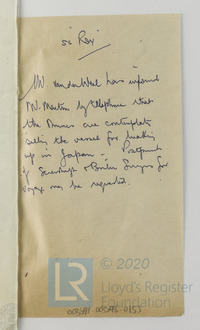 ss "Roxi"
Mr. Van der Wal has informed
Mr. Martin by telephone that
the Owners are contemplating
selling the vessel for breaking
up in Japan —
of Screwshaft & Boiler Surveys for
voyage may be requested.
© 2020
LR
Lloyd's Register
Foundation